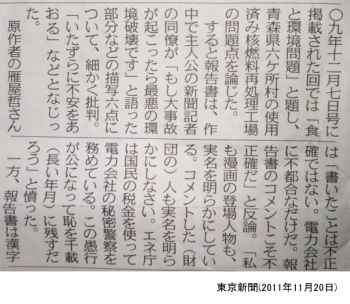 〇九年十二月七日号に
掲載された回では「食
と環境問題」と題し、
青森県六ケ所村の使用
済み核燃料再処理工場
の問題点を論じた。
すると報告書は、作
中で主人公の新聞記者
の同僚が「もし大事故
が起こったら最悪の環
境破壊です」と語った
部分などの描写六点に
ついて、細かく批判。
「いたずらに不安をあ
おる」などとなじっ
た。
原作者の雁屋哲さん
は「書いたことは不正
確ではない。電力会社
に不都合なだけだ。報
告書のコメントこそ不
正確だ」と反論。「私
も漫画の登場人物も、
実名を明らかにしてい
る。コメントした（財
団の）人も実名を明ら
かにしなさい。エネ庁
は国民の税金を使って
電力会社の秘密警察を
務めている。この愚行
が公になって恥を千載
（長い年月）に残すだ
ろう」と憤った。
一方、報告書は漢字
東京新聞(2011年11月20日)